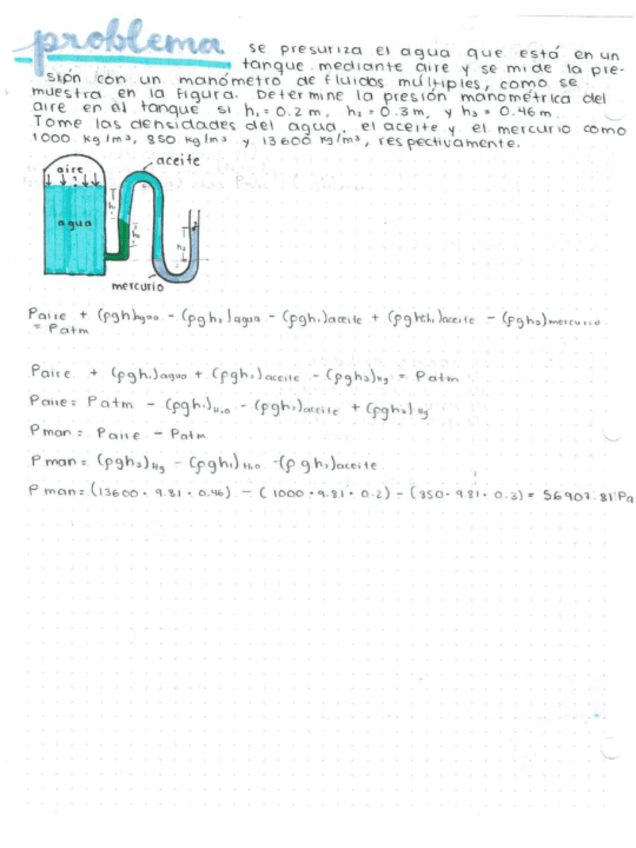 problema se presuriza el agua que está en un
tanque mediante aire y se mide la pre-
sión con un manómetro de fluidos múltiples, como se
muestra en la figura. Determine la presión manométrica del
aire en el tanque si h₁ = 0.2 m, h₂ = 0.3 m, y h₃ = 0.46 m.
Tome las densidades del agua, el aceite y el mercurio como
1000 kg/m³, 850 kg/m³ y 13600 kg/m³, respectivamente.
aire
aceite
agua
mercurio
Paire + (ρgh)agua - (ρgh)agua - (ρgh)aceite + (ρgh)aceite - (ρgh₃)mercurio
= Patm
Paire + (ρgh₁)agua + (ρgh₂)aceite - (ρgh₃)Hg = Patm
Paire = Patm - (ρgh₁)H₂O - (ρgh₂)aceite + (ρgh₃)Hg
Pman = Paire - Patm
Pman = (ρgh₃)Hg - (ρgh₁)H₂O - (ρgh₂)aceite
Pman = (13600 · 9.81 · 0.46) - (1000 · 9.81 · 0.2) - (850 · 9.81 · 0.3) = 56907.81 Pa